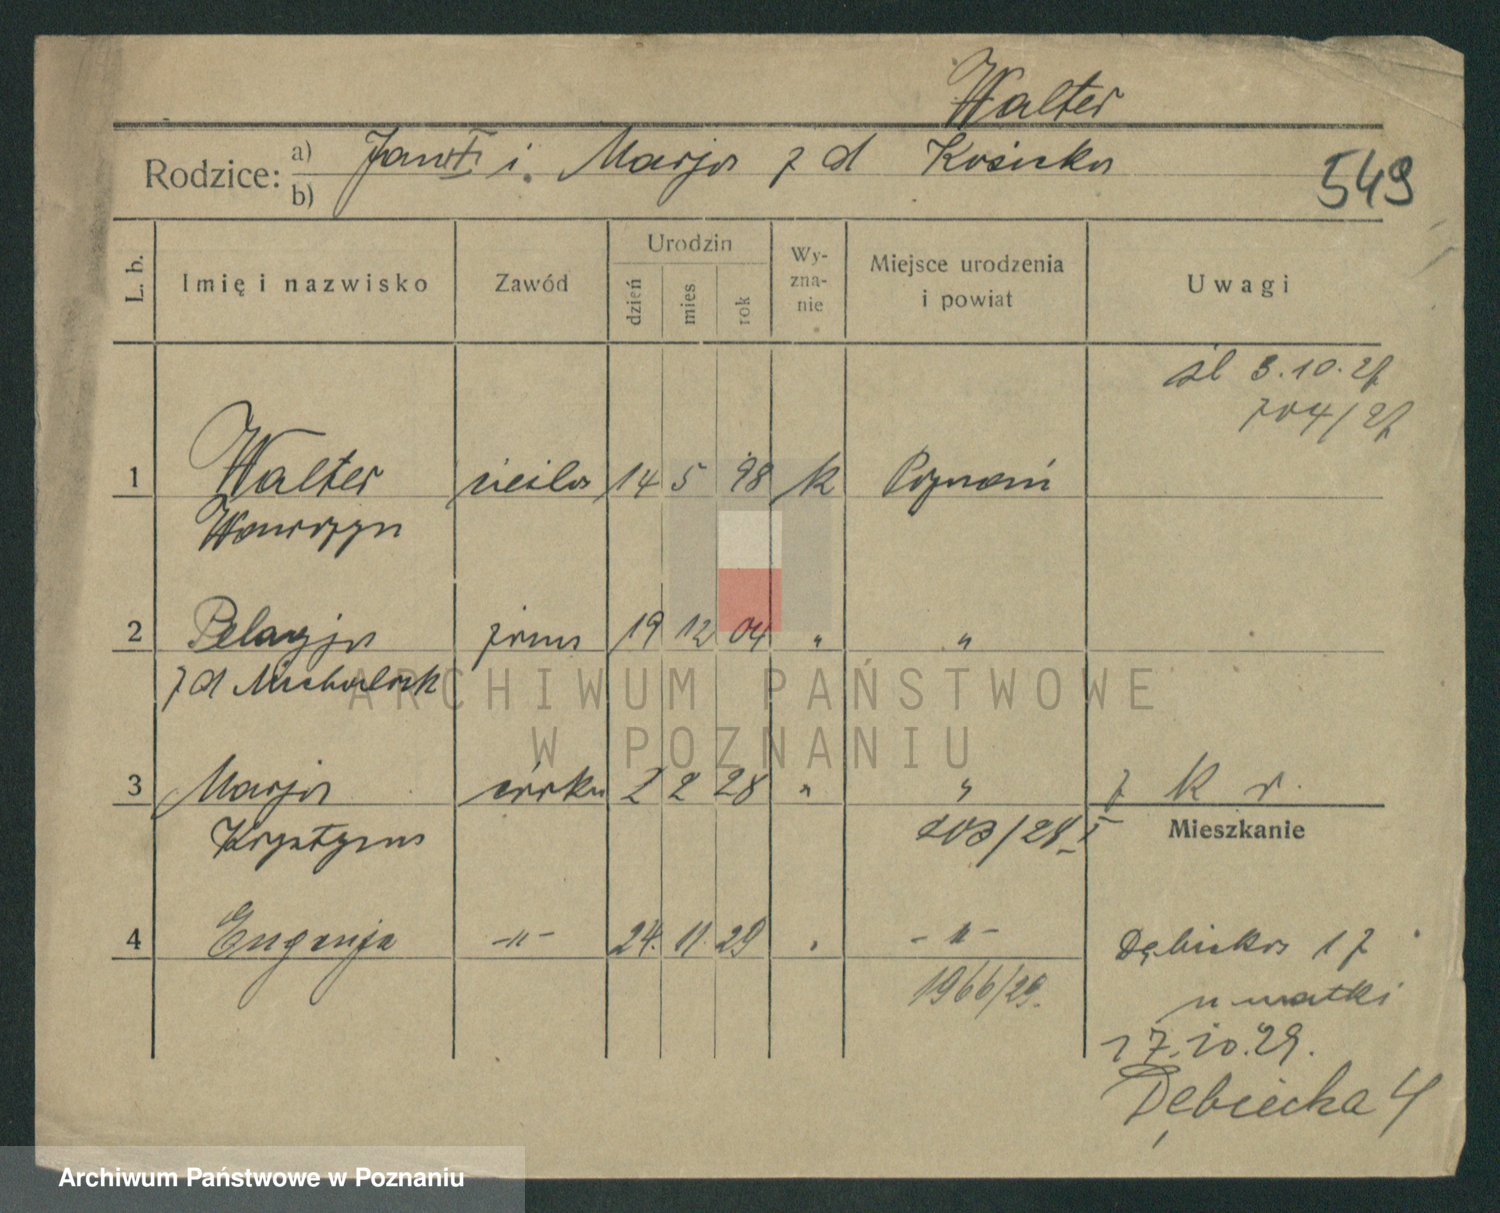 Walter
Rodzice: a) Jan † i Marja z d Kosicka
b)
549
L. b. Imię i nazwisko Zawód Urodzin dzień mies rok Wy-zna-nie Miejsce urodzenia i powiat Uwagi
śl 3.10.27
704/27
1 Walter cieśla 14 5 98 k Poznań
Wawrzyn
2 Pelagja żona 19 12 04 " "
z d Michalak
3 Marja córka 2 2 28 " " z k r
Krystyna 203/28 I
Mieszkanie
4 Eugenja -"- 24. 11. 29 " -"-
1966/29.
Dębicka 17
u matki
17.10.29.
Dębiecka 4
ARCHIWUM PAŃSTWOWE
W POZNANIU
Archiwum Państwowe w Poznaniu